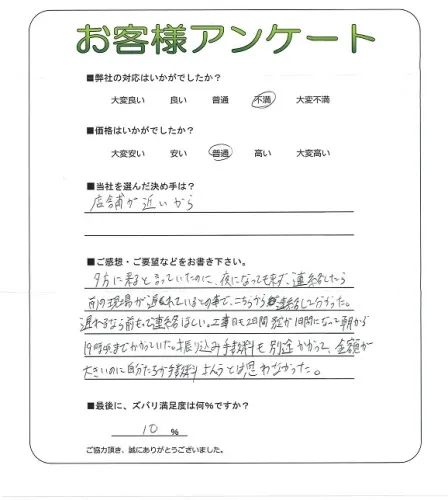 お客様アンケート
■弊社の対応はいかがでしたか？
大変良い 良い 普通 不満 大変不満
■価格はいかがでしたか？
大変安い 安い 普通 高い 大変高い
■当社を選んだ決め手は？
店舗が近いから
■ご感想・ご要望などをお書き下さい。
夕方に来ると言っていたのに、夜になっても来ず、連絡したら
前の現場が遅れているとの事で、こちらから連絡して分かった。
遅れるなら前もって連絡ほしい。工事日も2日間が1日間になって朝から
19時頃までかかっていた。振り込み手数料も別途かかって、金額が
大きいのに自分たちが手数料払うとは思わなかった。
■最後に、ズバリ満足度は何%ですか？
10 %
ご協力頂き、誠にありがとうございました。